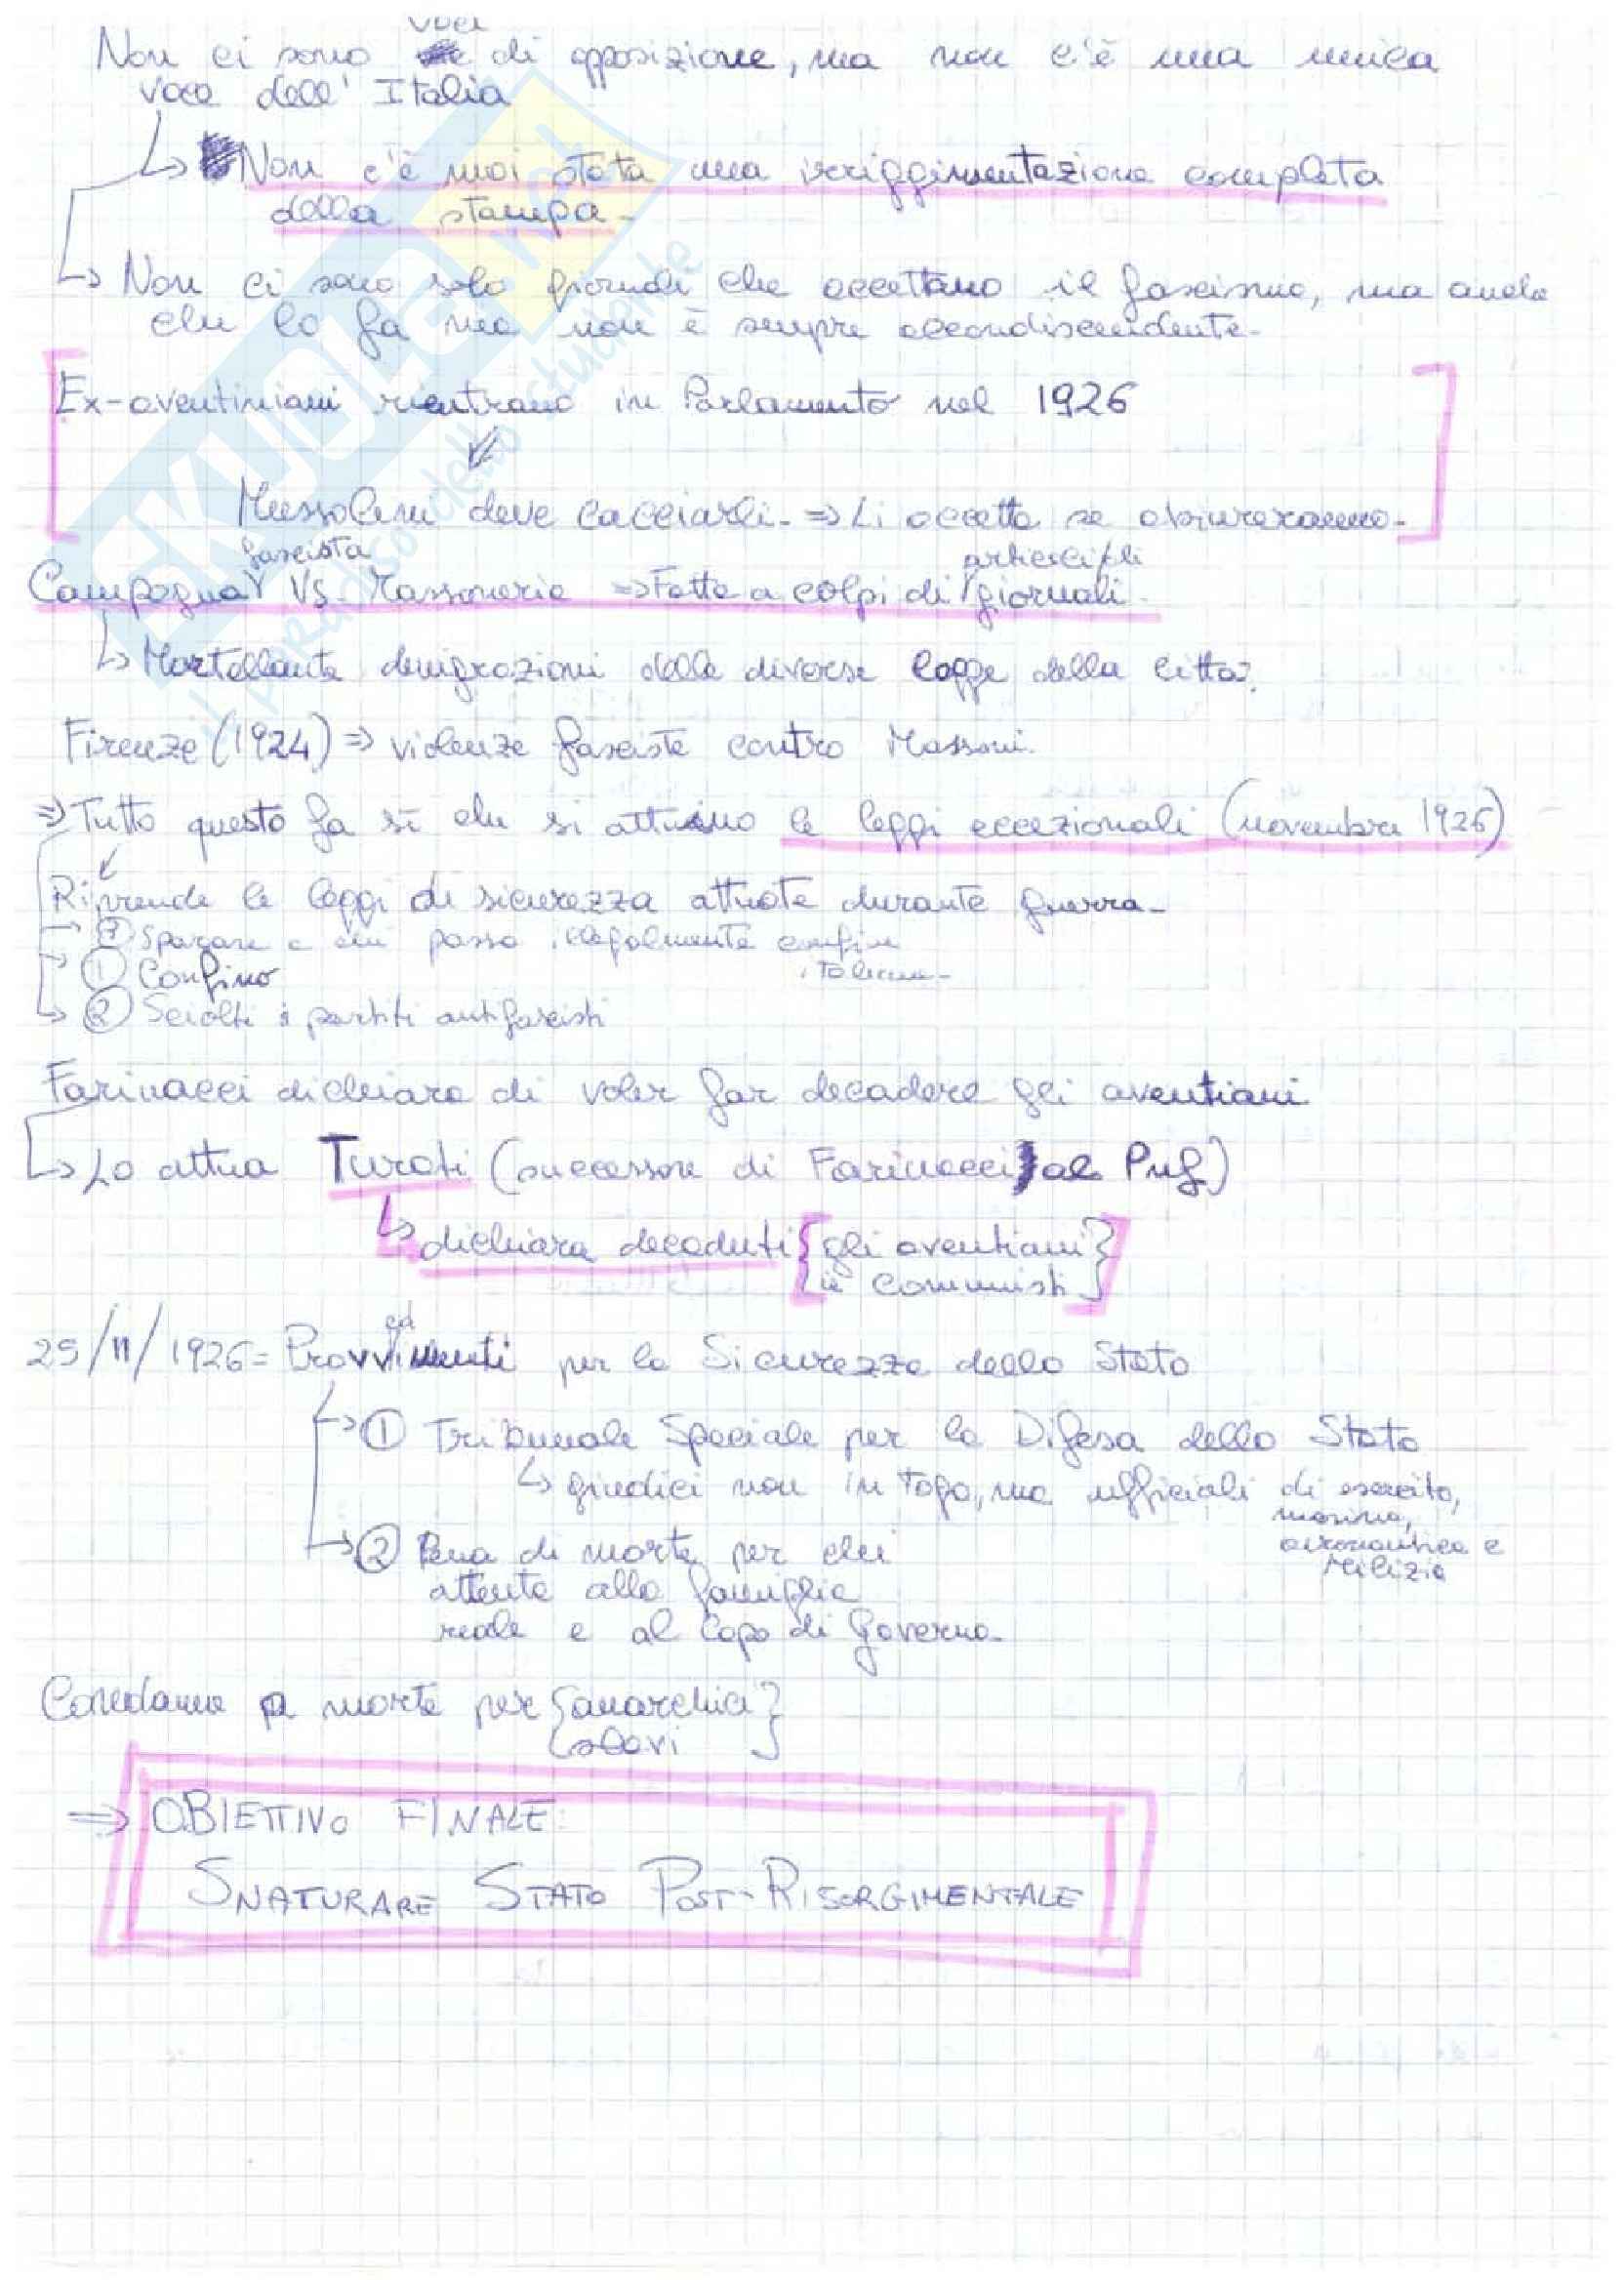 voci
Non ci sono di opposizione, ma non c'è una unica
voce dell'Italia
↳ Non c'è mai stata una irriggimentazione completa
della stampa-
↳ Non ci sono solo giornali che accettano il fascismo, ma anche
chi lo fa ma non è sempre accondiscendente-
Ex-aventiniani rientrano in Parlamento nel 1926
Mussolini deve cacciarli- ⇒ Li accetta se abiureranno-
fascista articoli
Campagna Vs. Massoneria ⇒ Fatta a colpi di giornali-
↳ Martellante denigrazioni delle diverse logge della città
Firenze (1924) ⇒ violenze fasciste contro Massoni.
⇒ Tutto questo fa sì che si attuino le leggi eccezionali (novembre 1926)
Riprende le leggi di sicurezza attuate durante guerra-
③ Sparare a chi passa illegalmente confine
italiano-
① Confino
② Sciolti i partiti antifascisti
Farinacci dichiara di voler far decadere gli aventiani
↳ Lo attua Turati (successore di Farinacci al Pnf)
↳ dichiara decaduti {gli aventiani}
{i comunisti}
ed
25/11/1926 = Provvimenti per la Sicurezza dello Stato
① Tribunale Speciale per la Difesa dello Stato
↳ giudici non in toga, ma ufficiali di esercito,
marina,
aeronautica e
Milizia
② Pena di morte per chi
attenta alla famiglia
reale e al Capo di Governo-
Condanne a morte per {anarchici}
{slavi}
⇒ OBIETTIVO FINALE:
SNATURARE STATO POST-RISORGIMENTALE
SKUOLA.net
il paradiso dello studente